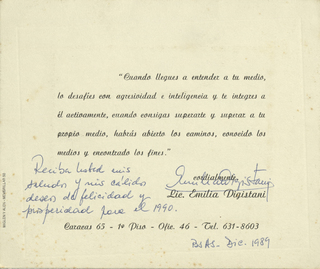 "Cuando llegues a entender a tu medio,
lo desafíes con agresividad e inteligencia y te integres a
él activamente, cuando consigas superarte y superar a tu
propio medio, habrás abierto los caminos, conocido los
medios y encontrado los fines."
Reciba Usted mis
saludos y mis cálidos
deseos de felicidad y
prosperidad para el 1990.
cordialmente,
Lic. Emilia Digistani
Caracas 65 - 1º Piso - Ofte. 46 - Tel. 631-8603
Bs As - Dic. 1989